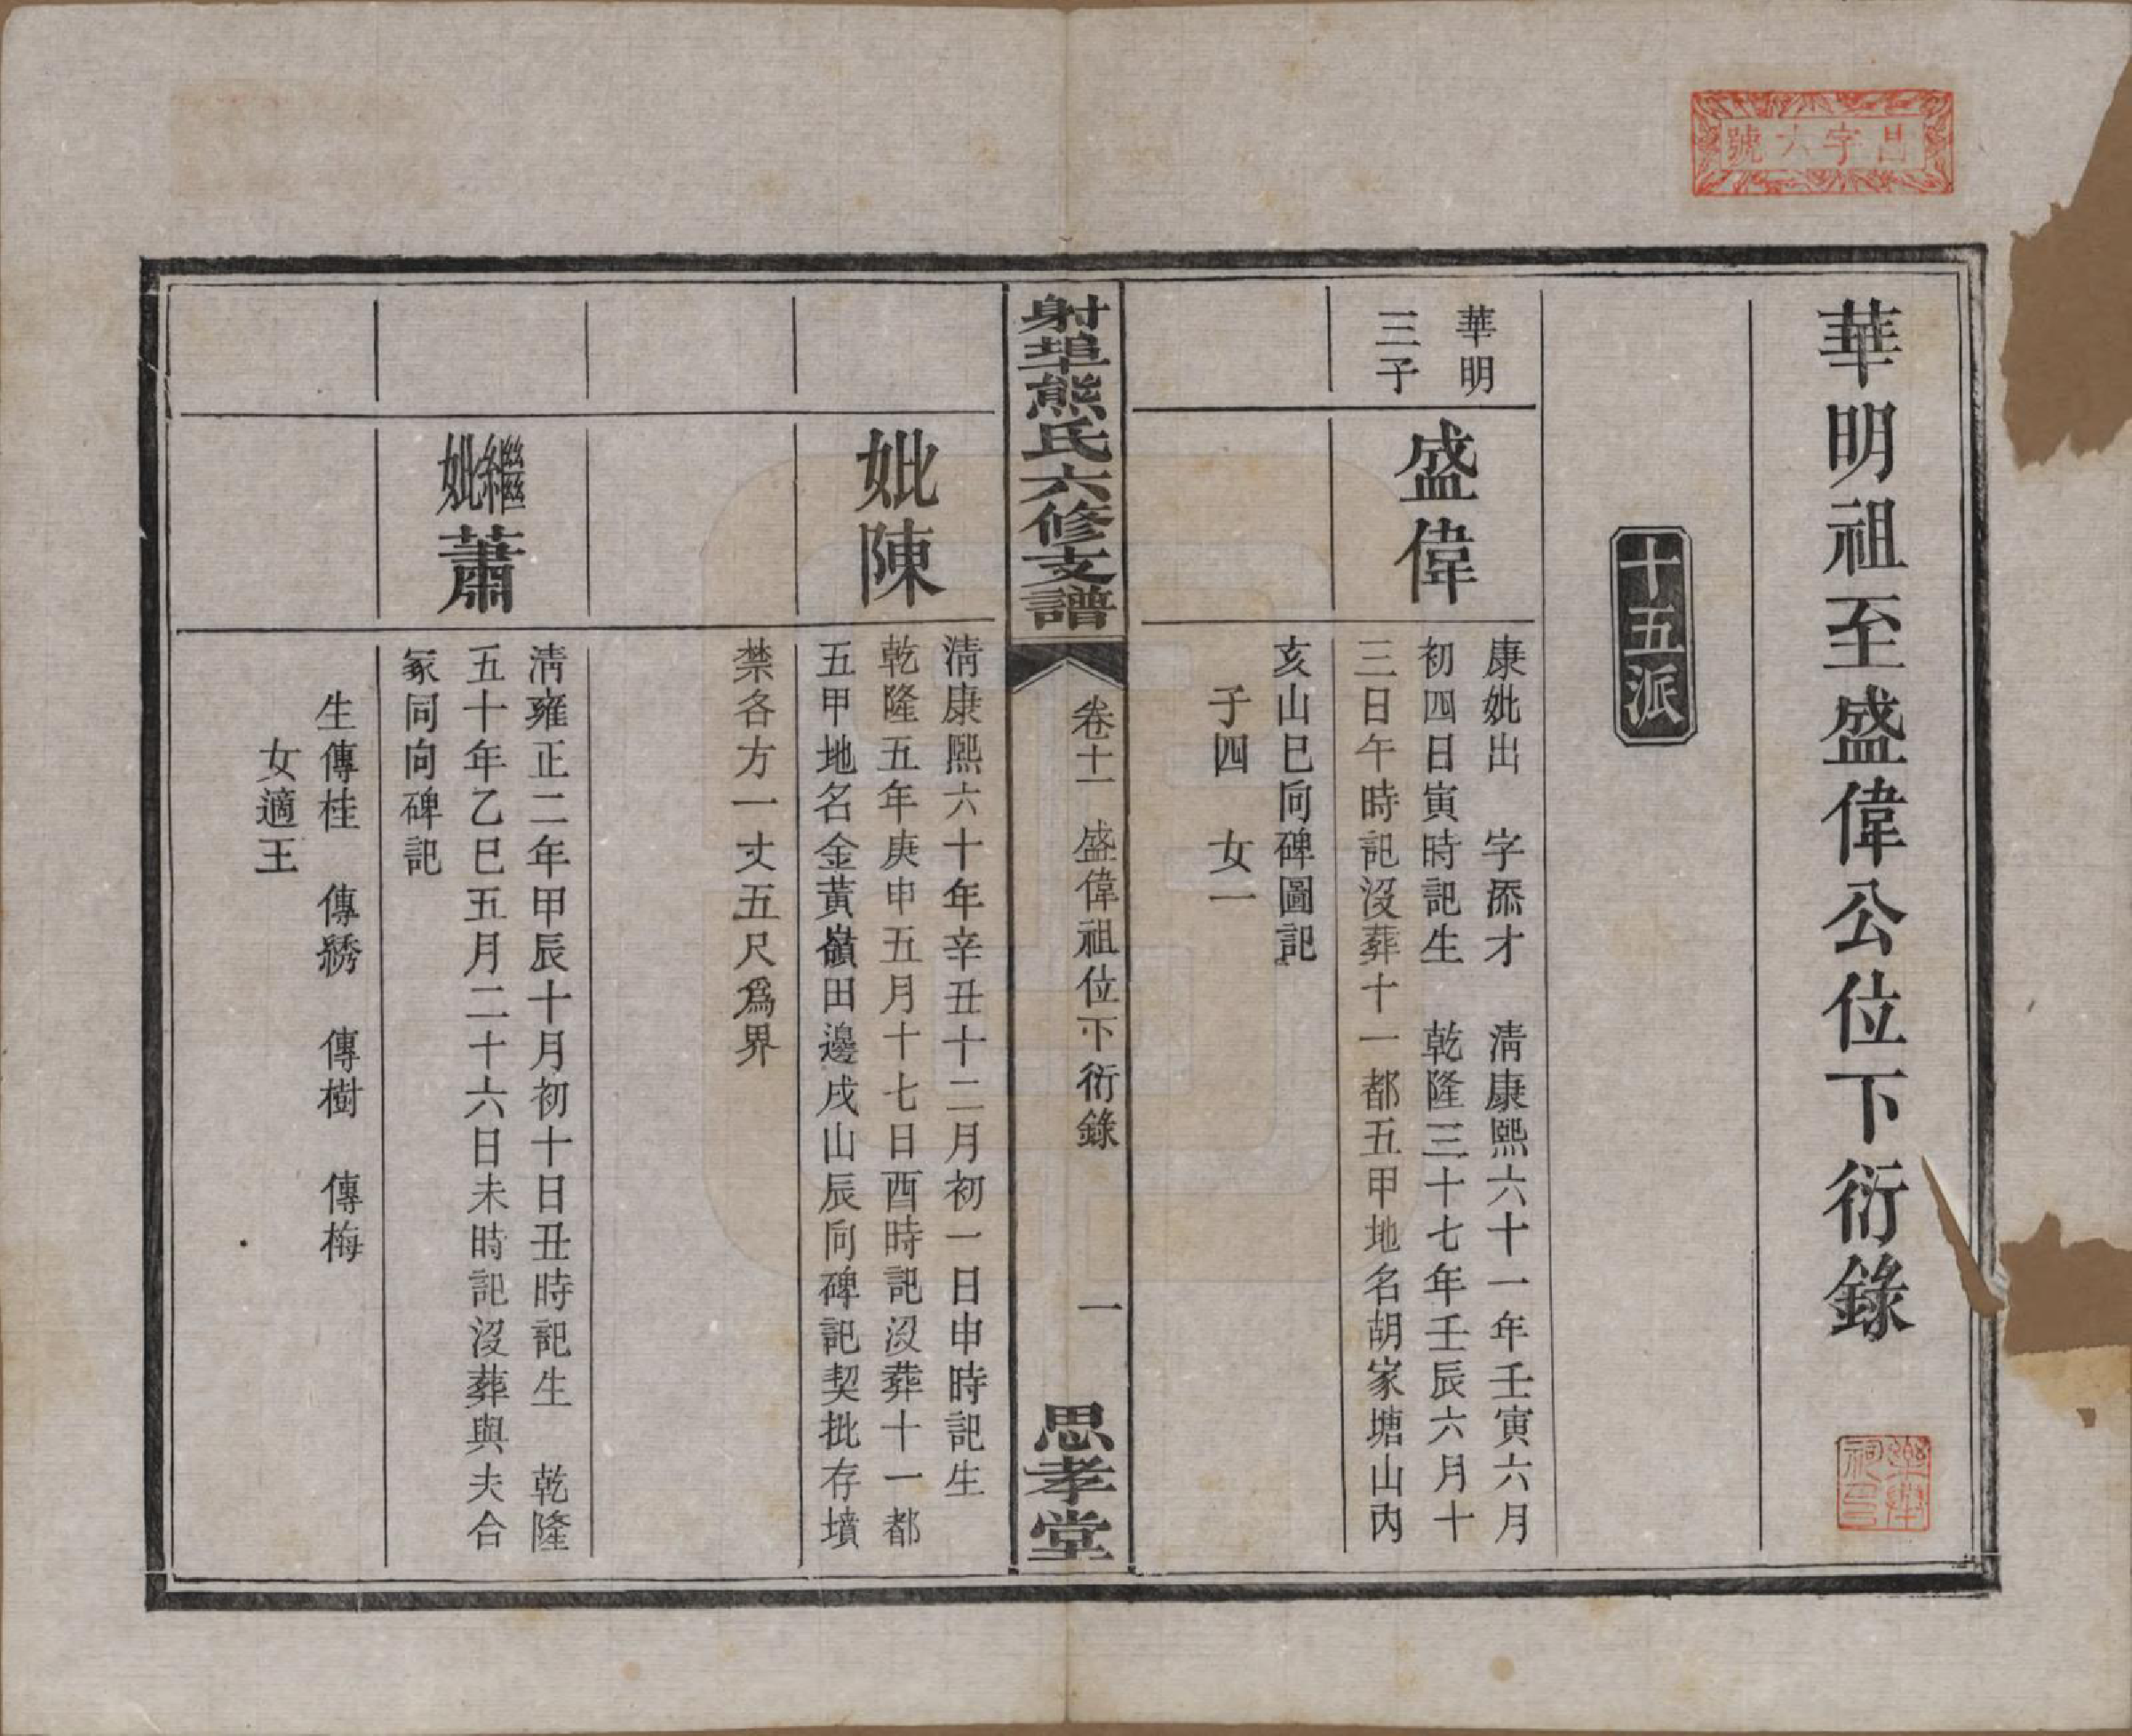 昌字六號
華明祖至盛偉公位下衍錄
十五派
華明
三子
盛偉
康妣出　字添才　清康熙六十一年壬寅六月
初四日寅時記生　乾隆三十七年壬辰六月十
三日午時記沒葬十一都五甲地名胡家塘山內
亥山巳向碑圖記
子四　女一
射埠熊氏六修支譜
卷十一　盛偉祖位下衍錄　一
思孝堂
妣陳
清康熙六十年辛丑十二月初一日申時記生
乾隆五年庚申五月十七日酉時記沒葬十一都
五甲地名金黃嶺田邊戌山辰向碑記契批存墳
禁各方一丈五尺爲界
繼妣蕭
清雍正二年甲辰十月初十日丑時記生　乾隆
五十年乙巳五月二十六日未時記沒葬與夫合
冢同向碑記
生傳桂　傳綉　傳樹　傳梅
女適王